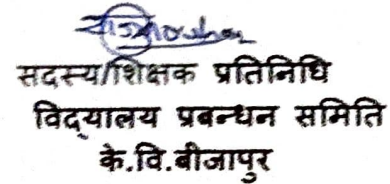 सदस्य/शिक्षक प्रतिनिधि
विद्यालय प्रबन्धन समिति
के.वि.बीजापुर